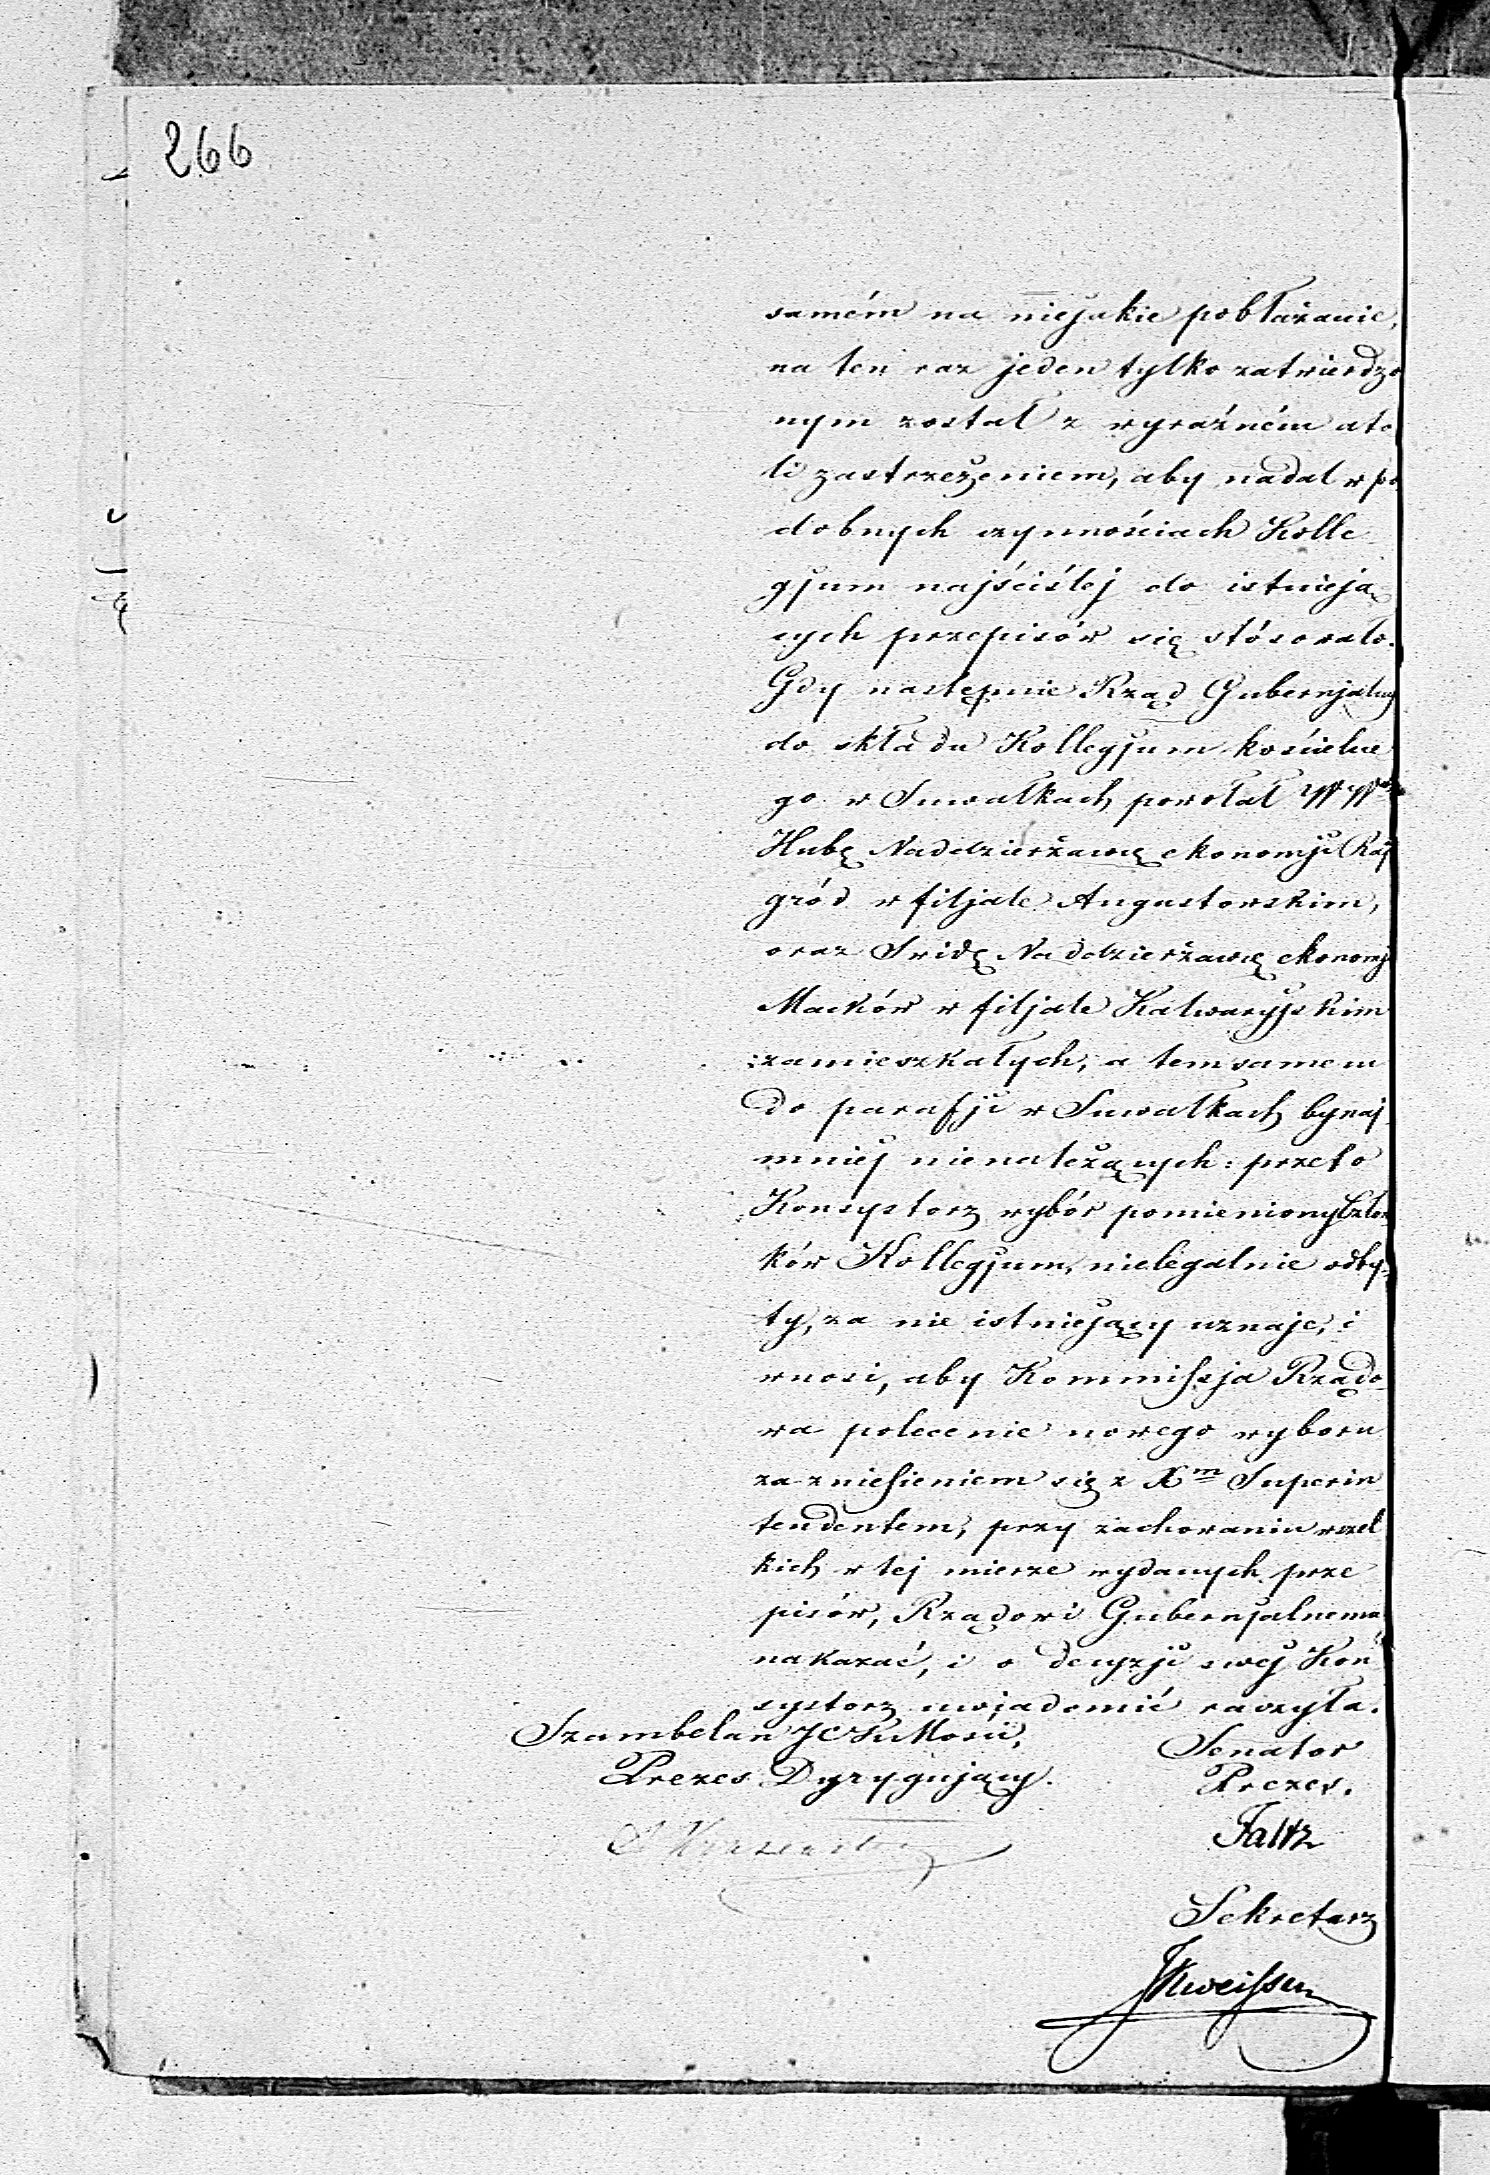 266
samém na niejakie pobłażanie,
na ten raz jeden tylko zatwierdzo
nym został z wyraźném ato
li zastrzeżeniem, aby nadal w po
dobnych czynnościach Kolle
gjum najściślej do istnieją
cych przepisów się stósowało.
Gdy następnie Rząd Gubernjalny
do składu Kollegjum kościelne
go w Suwałkach powołał
Hubę Naddzierżawcę ekonomji Raj
gród w filjale Augustowskim,
oraz Naddzierżawcę ekonomji
Maćków w filjale Kalwaryjskim
zamieszkałych, a tem samem
do parafji w Suwałkach bynaj
mniej nienależących: przeto
Konsystorz wybór pomienionych Człon
ków Kollegjum, nielegalnie odby
ty, za nie istniejący uznaje, i
wnosi, aby Kommissja Rządo
wa polecenie nowego wyboru
za zniesieniem się z Xm Superin
tendentem, przy zachowaniu wszel
kich w tej mierze wydanych prze
pisów, Rządowi Gubernjalnemu
nakazać, i o decyzji swej Kon
systorz uwiadomić raczyła.
Szambelan Mości,
Prezes Dyrygujący.
Senator
Prezes.
Faltz
Sekretarz